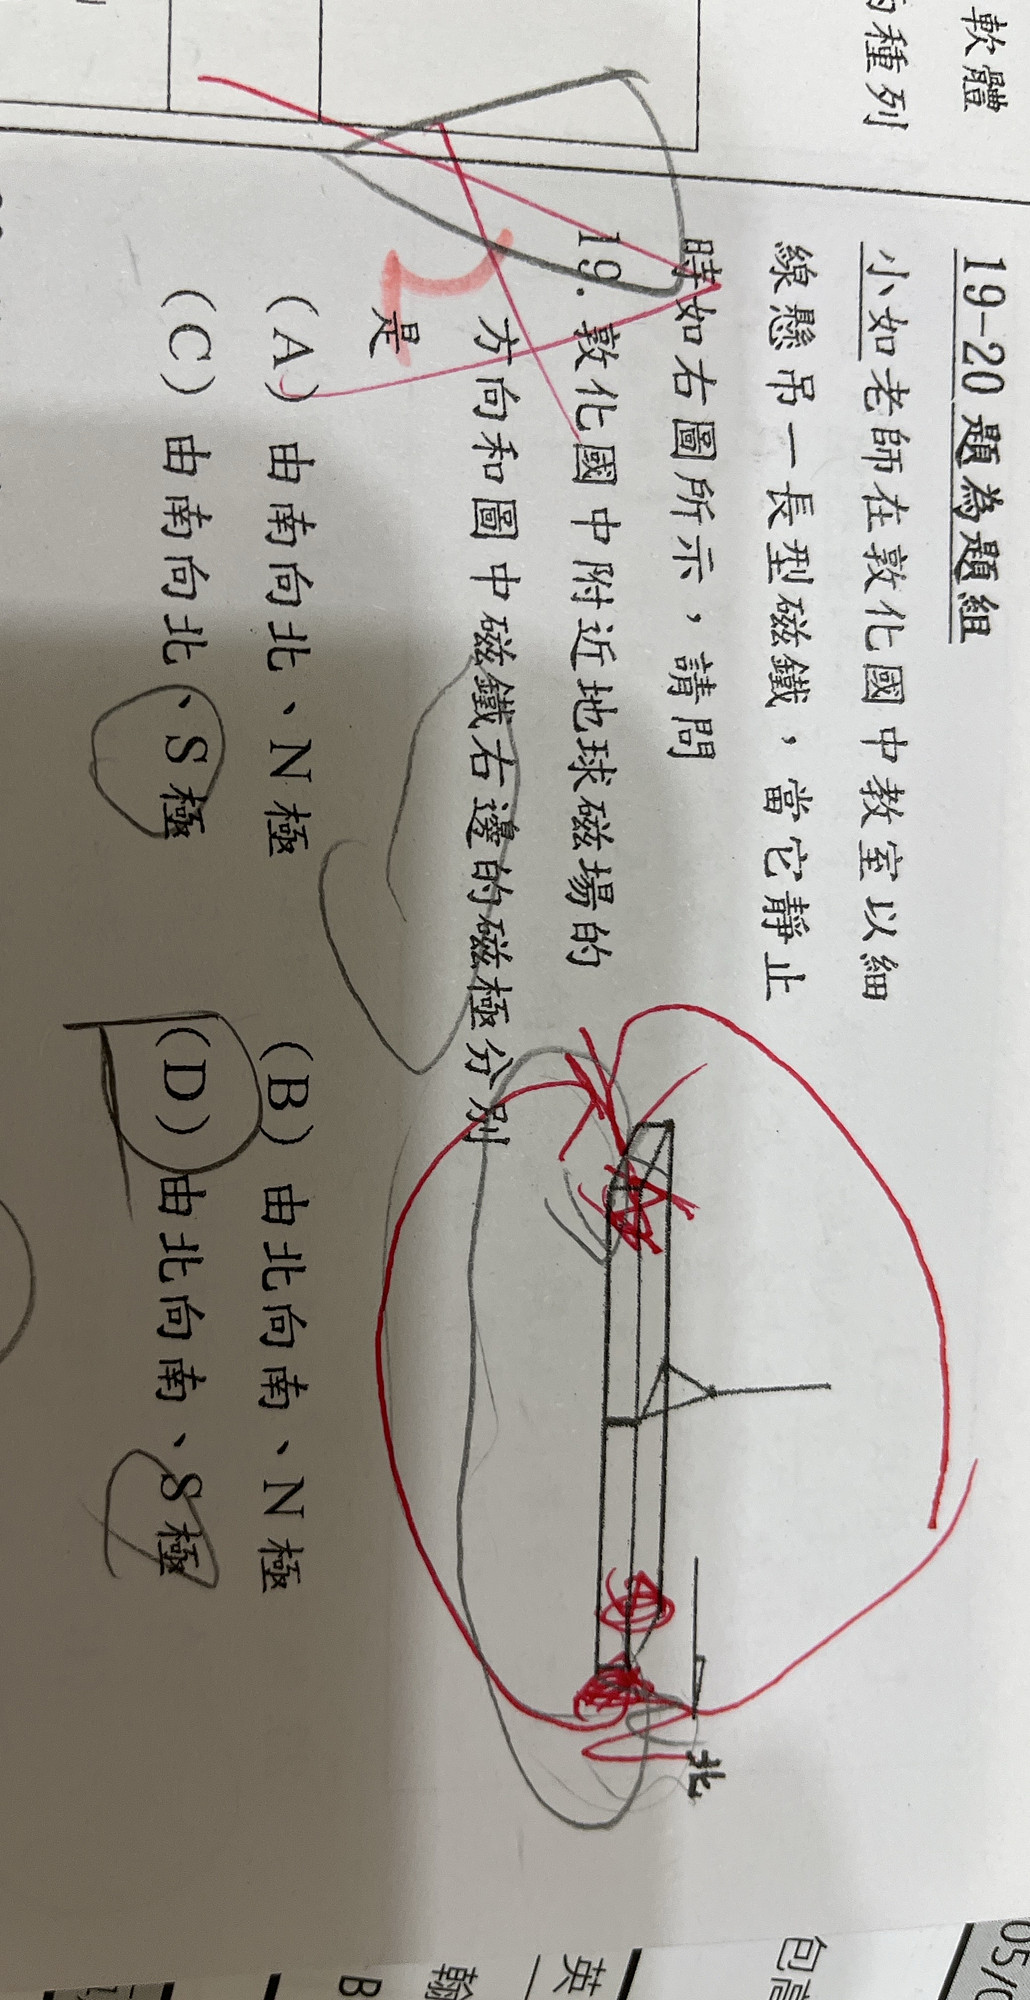 軟體
種列
19-20題為題組
小如老師在敦化國中教室以細
線懸吊一長型磁鐵，當它靜止
時如右圖所示，請問
19. 敦化國中附近地球磁場的
方向和圖中磁鐵右邊的磁極分別
是
(A) 由南向北、N極 (B) 由北向南、N極
(C) 由南向北、S極 (D) 由北向南、S極
北
N
05/0
包高
英
翰
B